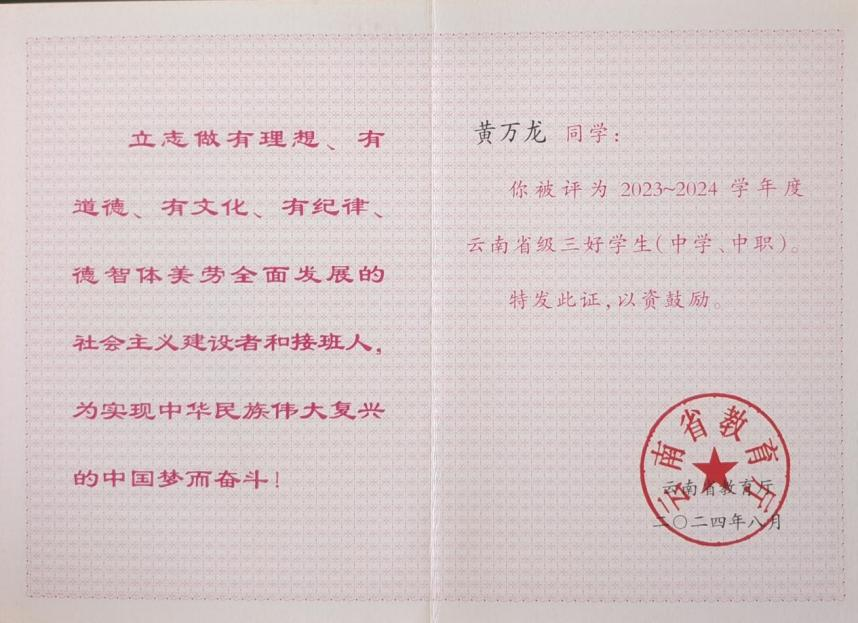 立志做有理想、有
道德、有文化、有纪律、
德智体美劳全面发展的
社会主义建设者和接班人，
为实现中华民族伟大复兴
的中国梦而奋斗！
黄万龙 同学：
你被评为 2023~2024 学年度
云南省级三好学生（中学、中职）。
特发此证，以资鼓励。
云南省教育厅
云南省教育厅
二〇二四年八月